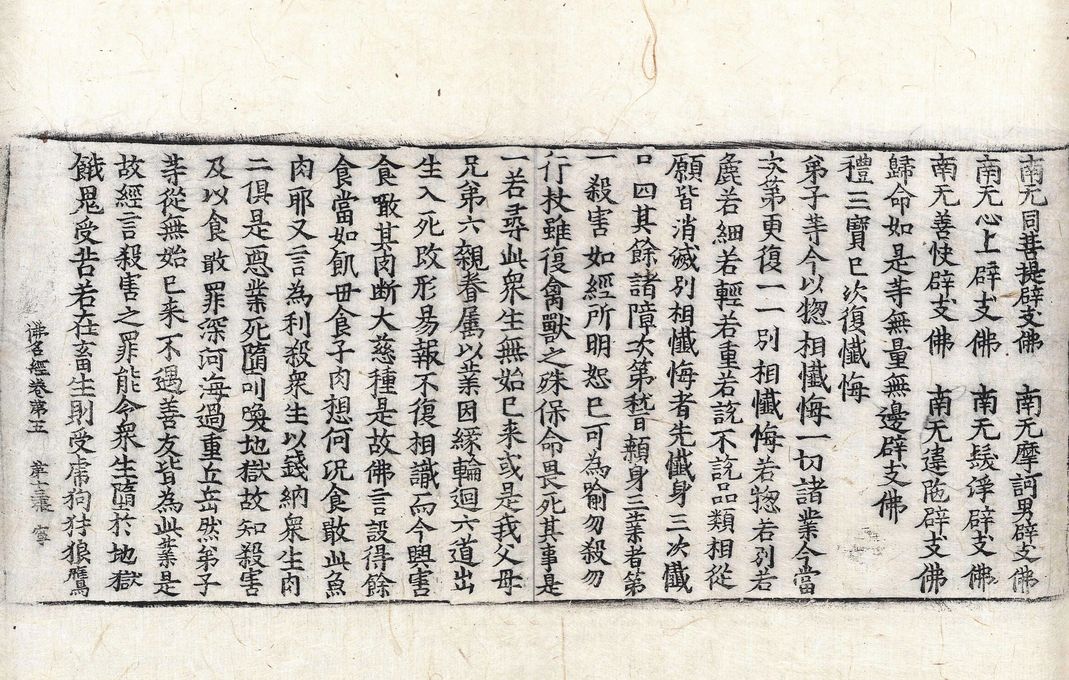 南无同菩提辟支佛　南无摩訶男辟支佛
南无心上辟支佛　南无髮淨辟支佛
南无善快辟支佛　南无違陁辟支佛
歸命如是等無量無邊辟支佛
禮三寶已次復懺悔
弟子等今以惣相懺悔一切諸業今當
次第更復一一別相懺悔若惣若別若
麁若細若輕若重若說不說品類相從
願皆消滅別相懺悔者先懺身三次懺
口四其餘諸障次第稽顙身三業者第
一殺害如經所明恕已可為喻勿殺勿
行杖雖復禽獸之殊保命畏死其事是
一若尋此衆生無始已来或是我父母
兄弟六親眷属以業因緣輪迴六道出
生入死改形易報不復相識而今興害
食噉其肉断大慈種是故佛言設得餘
食當如飢毋食子肉想何况食敢此魚
肉耶又言為利殺衆生以錢納衆生肉
二俱是惡業死墮叫喚地獄故知殺害
及以食敢罪深河海過重丘岳然弟子
等從無始已来不遇善友皆為此業是
故經言殺害之罪能令衆生墮於地獄
餓鬼受苦若在畜生則受虎狗犲狼鷹
佛名經卷第五